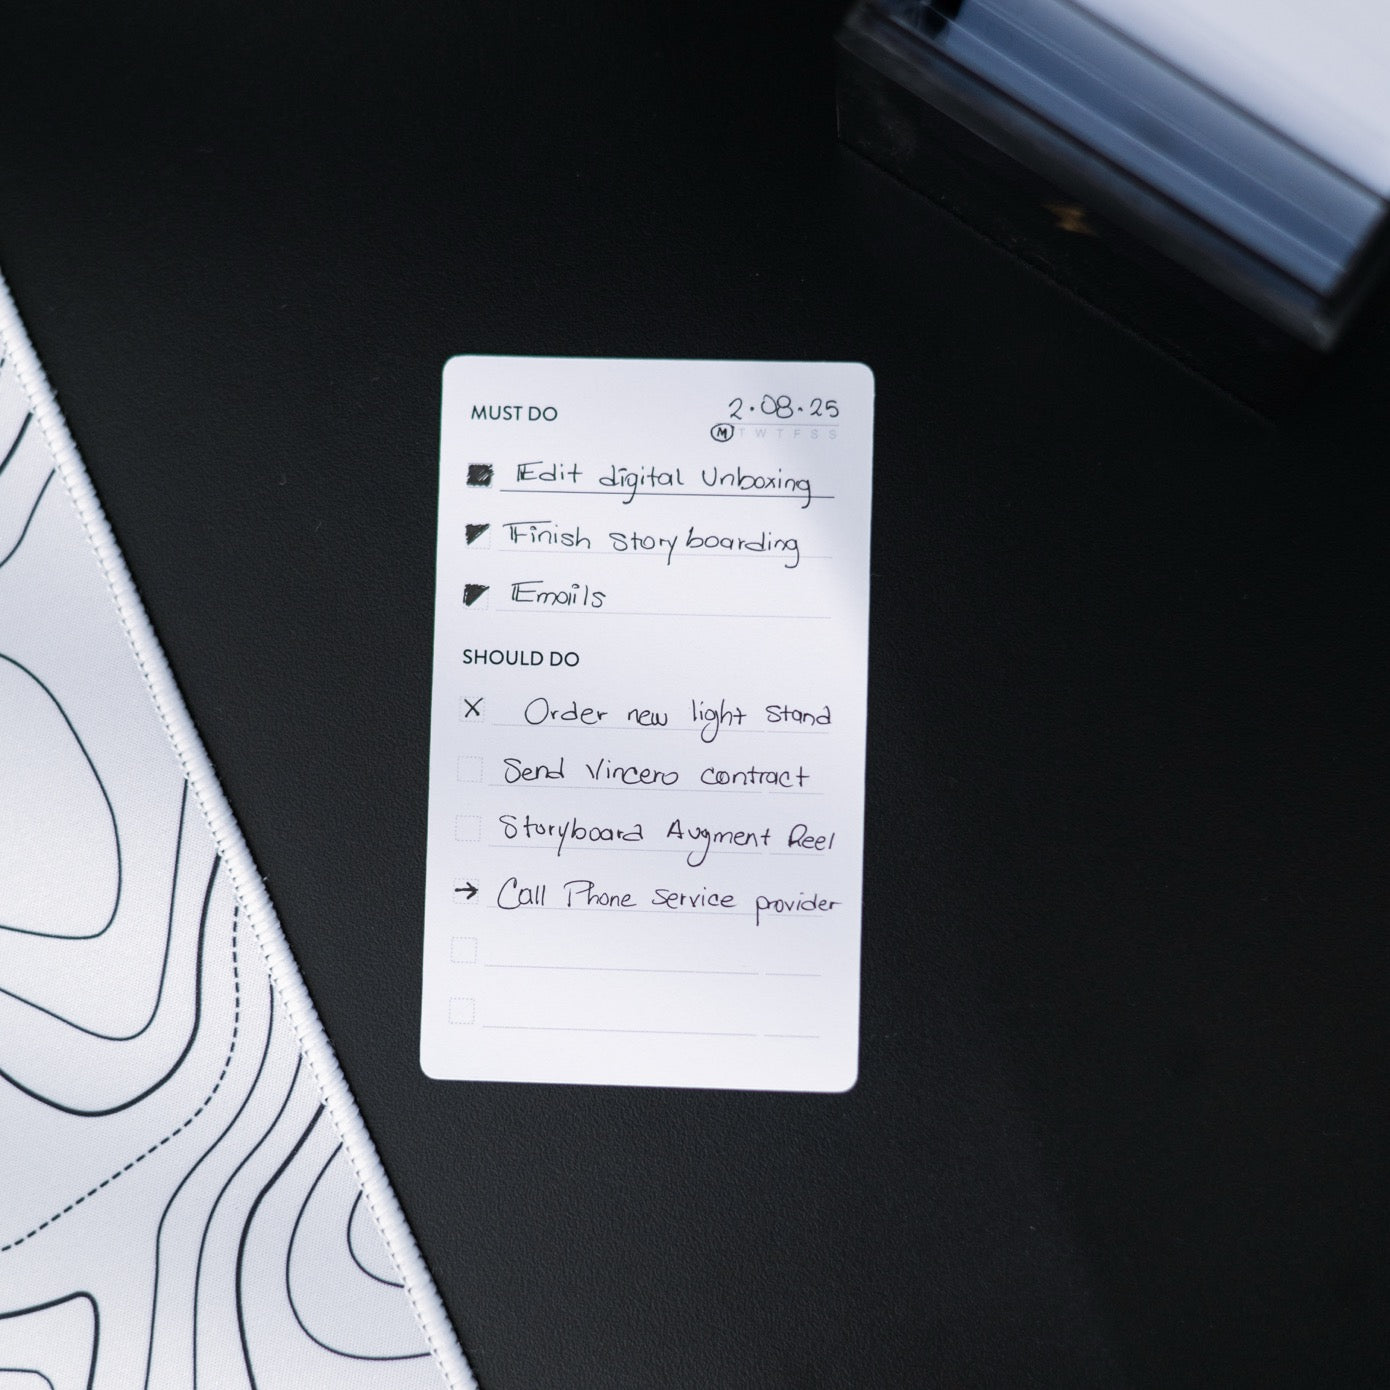 MUST DO
2·08·25
M T W T F S S
Edit digital Unboxing
Finish Storyboarding
Emails
SHOULD DO
X Order new light Stand
Send Vincero contract
Storyboard Augment Reel
→ Call Phone Service provider